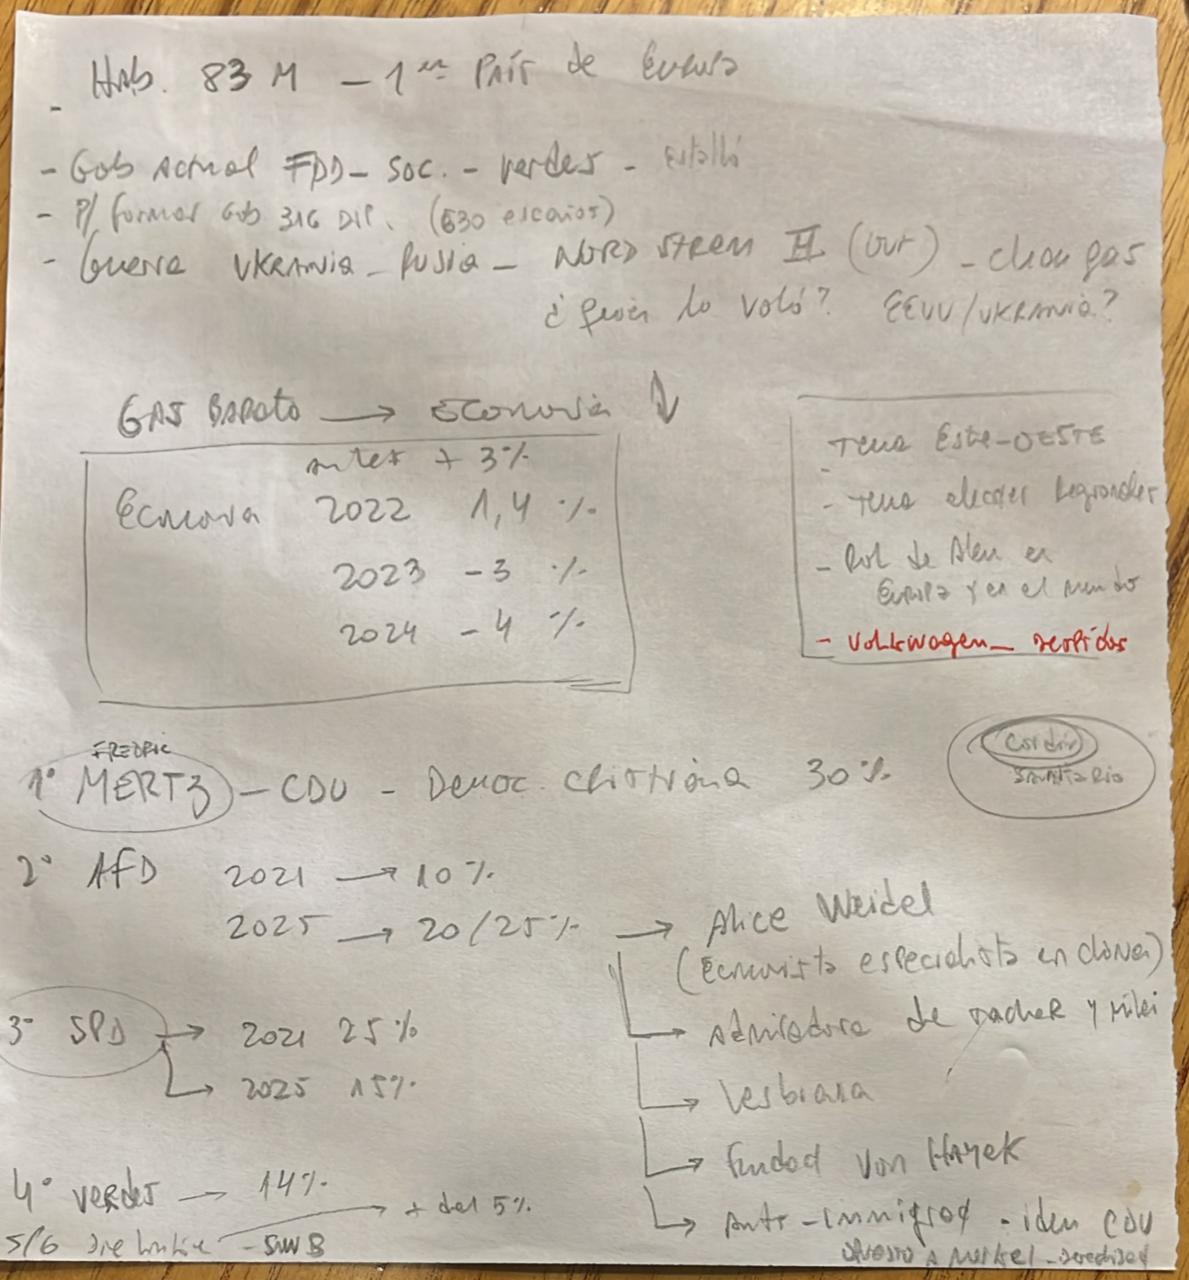 - Hab. 83 M - 1er País de Europa
- Gob Actual FDD - Soc. - Verdes - Estalló
- P/ formar Gob 316 DIP. (630 escaños)
- Guerra UKRANIA - Rusia - NORD STREAM II (out) - chau gas
¿quien lo voló? EEUU/UKRANIA?
GAS BARATO → ECONOMIA ↓
antes + 3%
Economia 2022 1,4 %
2023 -3 %
2024 -4 %
Tema Este-OESTE
- Tema
- Rol de Alem en
Europa y en el mundo
- Volkswagen - despidos
FREDRIC
1° MERTZ - CDU - Democ. Christiana 30%
Cordón
SANITARIO
2° AfD 2021 → 10%
2025 → 20/25% → Alice Weidel
(Economista especialista en China)
→ Admiradora de Tacher y Milei
3° SPD → 2021 25%
→ 2025 15%
→ Lesbiana
→ Fundad Von Hayek
4° Verdes → 14%
→ + del 5%
→ Anti-inmigrad - idem CDU
5/6 Die Linke - SWB
opuesto a Merkel -